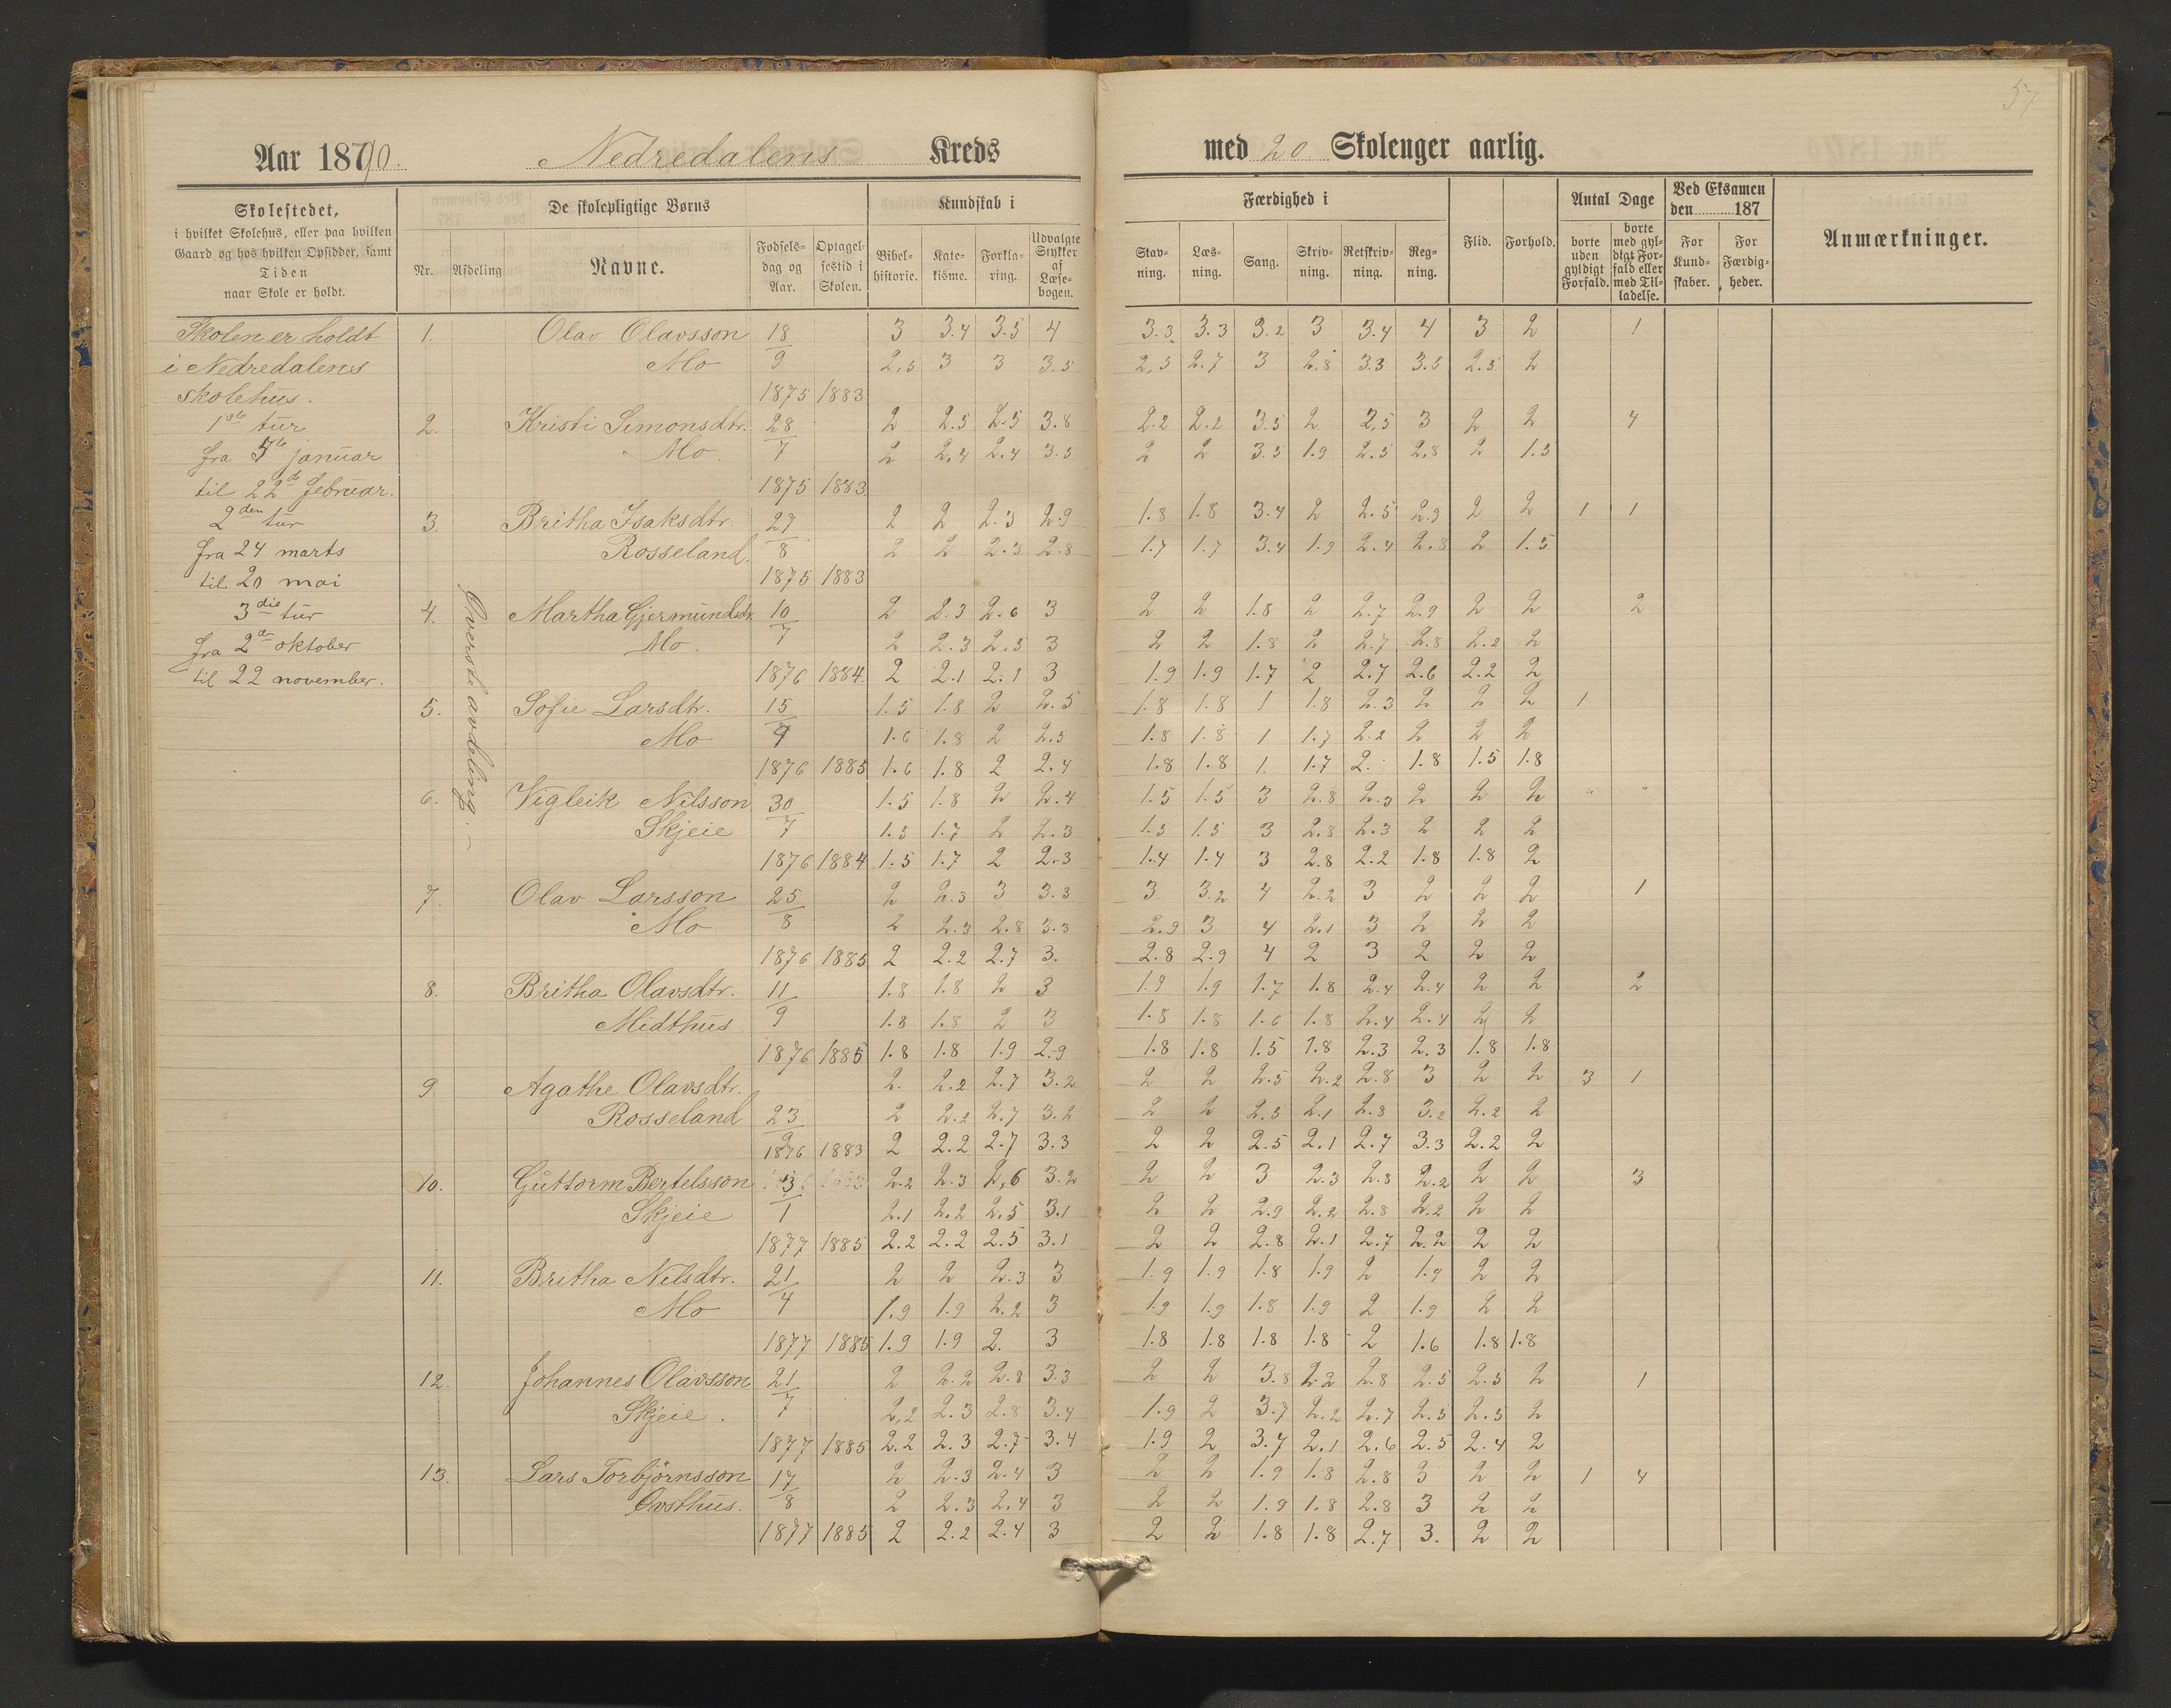 57
Aar 1890. Nedredalens Kreds med 20 Skolenger aarlig.
Skolestedet,
i hvilket Skolehus, eller paa hvilken
Gaard og hos hvilken Opsidder, samt
Tiden
naar Skole er holdt.
De skolepligtige Børns
Nr. Afdeling Navne. Fødselsdag og Aar. Optagelsestid i Skolen.
Kundskab i
Bibelhistorie. Katekisme. Forklaring. Udvalgte Stykker af Læsebogen.
Færdighed i
Stavning. Læsning. Sang. Skrivning. Retskrivning. Regning.
Flid. Forhold.
Antal Dage
borte uden gyldigt Forfald. borte med gyldigt Forfald eller med Tilladelse.
Ved Eksamen
den 187
For Kundskaber. For Færdigheder.
Anmærkninger.
Skolen er holdt
i Nedredalens
skolehus.
1ste tur
fra januar
til 22de februar.
2den tur
fra 24 marts
til 20 mai
3die tur
fra 2de oktober
til 22 november.
Øverste avdeling.
1. Olav Olavsson 18 3 3.4 3.5 4 3.3 3.3 3.2 3 3.4 4 3 2 1
Mo 9 2,5 3 3 3.5 2,5 2.7 3 2.8 3.3 3.5 2.5 2
1875 1883
2. Kristi Simonsdtr. 28 2 2.5 2.5 3.8 2.2 2.2 3.5 2 2,5 3 2 2 4
Mo 7 2 2.4 2.4 3.5 2 2 3.5 1.9 2.5 2.8 2 1.5
1875 1883
3. Britha Isaksdtr. 27 2 2 2.3 2.9 1.8 1.8 3.4 2 2.5 2.9 2 2 1 1
Rosseland. 8 2 2 2.3 2.8 1.7 1.7 3.4 1.9 2.4 2.8 2 1.5
1875 1883
4. Martha Gjermundsdtr. 10 2 2.3 2.6 3 2 2 1.8 2 2.7 2.9 2 2 2
Mo. 7 2 2.3 2.5 3 2 2 1.8 2 2.7 2.8 2.2 2
1876 1884. 2 2.1 2.1 3 1.9 1.9 1.7 2 2.7 2.6 2.2 2
5. Sofie Larsdtr. 15 1.5 1.8 2 2.5 1.8 1.8 1 1.8 2.3 2 2 2 1
Mo 1.6 1.8 2 2.5 1.8 1.8 1 1.7 2.2 2 2 2
1876 1885 1.6 1.8 2 2.4 1.8 1.8 1 1.7 2. 1.8 1.5 1.8
6. Vigleik Nilsson 30 1.5 1.8 2 2.4 1.5 1.5 3 2.8 2.3 2 2 2 " "
Skjeie 7 1.5 1.7 2 2.3 1.5 1.5 3 2.8 2.3 2 2 2
1876 1884 1.5 1.7 2 2.3 1.4 1.4 3 2.8 2.2 1.8 1.8 2
7. Olav Larsson 25 2 2.3 3 3.3 3 3.2 4 2.2 3 2 2 2 1
Mo 8 2 2.3 2.8 3.3 2.9 3 4 2.1 3 2 2 2
1876 1885 2 2.2 2.7 3. 2.8 2.9 4 2 3 2 2 2
8. Britha Olavsdtr. 11 1.8 1.8 2 3 1.9 1.9 1.7 1.8 2.4 2.4 2 2 2
Midthus 9 1.8 1.8 2 3 1.8 1.8 1.6 1.8 2.4 2.4 2 2
1876 1885 1.8 1.8 1.9 2.9 1.8 1.8 1.5 1.8 2.3 2.3 1.8 1.8
9. Agathe Olavsdtr. 2. 2.2 2.7 3.2 2 2 2.5 2.2 2.8 3 2 2 3 1
Rosseland 23 2 2.2 2.7 3.2 2 2 2.5 2.1 2.8 3.2 2.2 2
9 1876 1883 2 2.2 2.7 3.3 2 2 2.5 2.1 2.7 3.3 2.2 2
10. Guttorm Bertelsson 3 2.2 2.3 2,6 3.2 2 2 3 2.3 2.8 2.2 2 2 3
Skjeie 1 2.1 2.2 2.5 3.1 2 2 2.9 2.2 2.8 2.2 2 2
1877 1885 2.2 2.2 2.5 3.1 2 2 2.8 2.1 2.7 2.2 2 2
11. Britha Nilsdtr. 21 2 2 2.3 3 1.9 1.9 1.8 1.9 2 1.9 2 2
Mo 4 1.9 1.9 2.2 3 1.9 1.9 1.8 1.9 2 1.9 2 2
1877 1885 1.9 1.9 2. 3 1.8 1.8 1.8 1.8 2 1.6 1.8 1.8
12. Johannes Olavsson 21 2 2.2 2.8 3.3 2 2 3.8 2.2 2.8 2.5 2.5 2 1
Skjeie. 7 2,2 2.3 2.8 3.4 1.9 2 3.7 2.2 2.7 2.5 2.5 2
1877 1885 2.2 2.3 2.7 3.4 1.9 2 3.7 2.1 2.6 2.5 2.4 2
13. Lars Torbjörnsson 17 2 2.3 2.4 3 2 2 1.9 1.8 2.8 3 2 2 1 4
Øvsthus. 8 2 2.3 2.4 3 2 2 1.9 1.8 2.8 3 2 2
1877 1885 2 2.2 2.4 3 2 2 1.8 1.8 2.7 3. 2 2